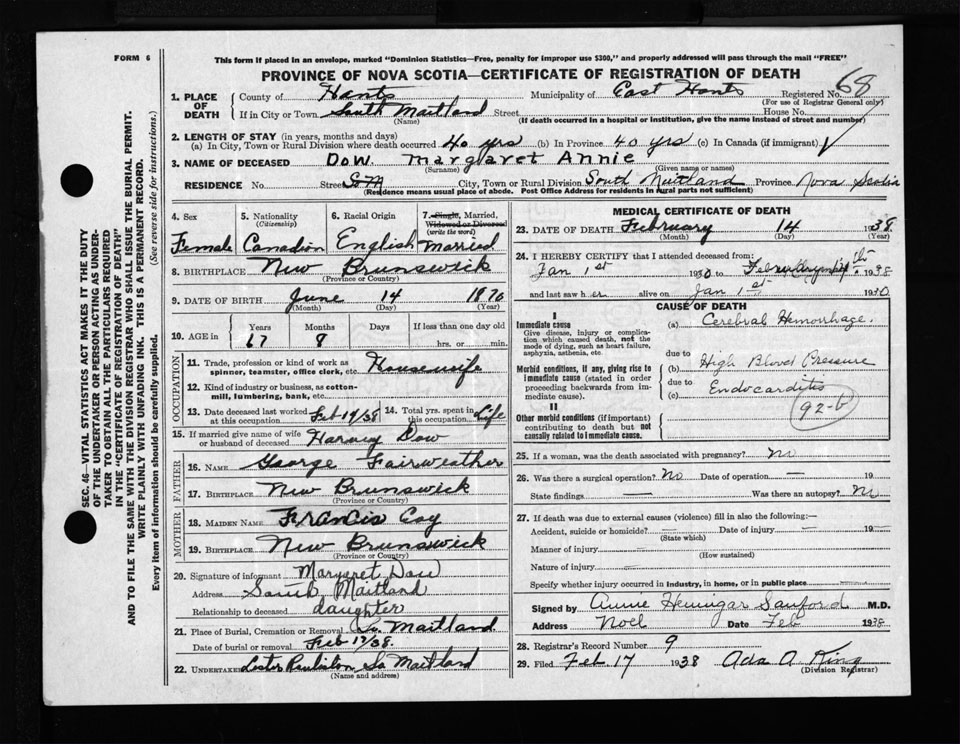 FORM 6
This form if placed in an envelope, marked "Dominion Statistics—Free, penalty for improper use $300," and properly addressed will pass through the mail "FREE"
PROVINCE OF NOVA SCOTIA—CERTIFICATE OF REGISTRATION OF DEATH
68
1. PLACE OF DEATH
County of Hants Municipality of East Hants Registered No.
(For use of Registrar General only)
If in City or Town South Maitland Street House No.
(Name) (If death occurred in a hospital or institution, give the name instead of street and number)
2. LENGTH OF STAY (in years, months and days)
(a) In City, Town or Rural Division where death occurred 40 yrs (b) In Province 40 yrs (c) In Canada (if immigrant)
3. NAME OF DECEASED Dow. Margaret Annie
(Surname) (Given name or names)
RESIDENCE No. Street City, Town or Rural Division South Maitland Province Nova Scotia
(Residence means usual place of abode. Post Office Address for residents in rural parts not sufficient)
4. Sex
Female
5. Nationality
(Citizenship)
Canadian
6. Racial Origin
English
7. Single, Married,
Widowed or Divorced
(write the word)
Married
8. BIRTHPLACE New Brunswick
(Province or Country)
9. DATE OF BIRTH June 14 1870
(Month) (Day) (Year)
10. AGE in Years Months Days If less than one day old
67 8 hrs. or min.
OCCUPATION
11. Trade, profession or kind of work as
spinner, teamster, office clerk, etc. Housewife
12. Kind of industry or business, as cotton-
mill, lumbering, bank, etc.
13. Date deceased last worked
at this occupation Feb 14/38
14. Total yrs. spent in
this occupation Life
15. If married give name of wife
or husband of deceased Harvey Dow
FATHER
16. NAME George Fairweather
17. BIRTHPLACE New Brunswick
(Province or Country)
MOTHER
18. MAIDEN NAME Francis Coy
19. BIRTHPLACE New Brunswick
(Province or Country)
20. Signature of informant Margaret Dow
Address South Maitland
Relationship to deceased daughter
21. Place of Burial, Cremation or Removal So. Maitland
Date of burial or removal Feb 17/38.
22. UNDERTAKER Lester So Maitland
(Name and address)
MEDICAL CERTIFICATE OF DEATH
23. DATE OF DEATH February 14 1938
(Month) (Day) (Year)
24. I HEREBY CERTIFY that I attended deceased from:
Jan 1st 1930 to 1938
and last saw her alive on Jan 1st 1930
CAUSE OF DEATH
I
Immediate cause
Give disease, injury or complica-
tion which caused death, not the
mode of dying, such as heart failure,
asphyxia, asthenia, etc
(a) Cerebral Hemorrhage.
due to
Morbid conditions, if any, giving rise to
immediate cause (stated in order
proceeding backwards from im-
mediate cause).
(b) High Blood Pressure
due to
(c) Endocarditis
92-b
II
Other morbid conditions (if important)
contributing to death but not
causally related to immediate cause.
25. If a woman, was the death associated with pregnancy? No
26. Was there a surgical operation? No Date of operation — 19
State findings — Was there an autopsy? No
27. If death was due to external causes (violence) fill in also the following:—
Accident, suicide or homicide? Date of injury — 19
(State which)
Manner of injury —
(How sustained)
Nature of injury —
Specify whether injury occurred in industry, in home, or in public place
Signed by Annie Hennigar Sanford M.D.
Address Noel Date Feb 1938
28. Registrar's Record Number 9
29. Filed Feb 17 1938 Ada A King
(Division Registrar)
SEC. 46—VITAL STATISTICS ACT MAKES IT THE DUTY
OF THE UNDERTAKER OR PERSON ACTING AS UNDER-
TAKER TO OBTAIN ALL THE PARTICULARS REQUIRED
IN THE "CERTIFICATE OF REGISTRATION OF DEATH"
AND TO FILE THE SAME WITH THE DIVISION REGISTRAR WHO SHALL ISSUE THE BURIAL PERMIT.
WRITE PLAINLY WITH UNFADING INK. THIS IS A PERMANENT RECORD.
Every item of information should be carefully supplied. (See reverse side for instructions.)